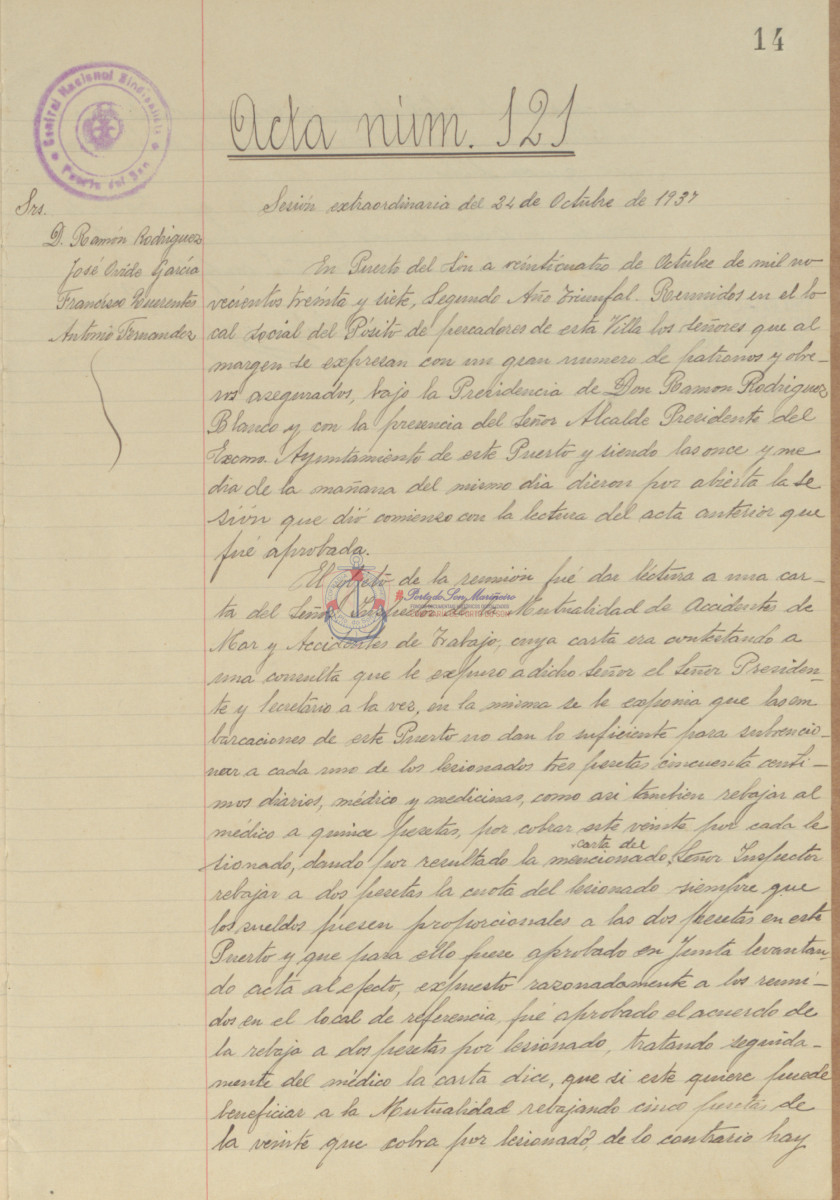 14
Central Nacional Sindicalista
Puerto del Son
Acta núm. 121
Sesión extraordinaria del 24 de Octubre de 1937
Srs.
D. Ramón Rodriguez
José Ovide García
Francisco Querentes
Antonio Fernandez
En Puerto del Son a veinticuatro de Octubre de mil no-
vecientos treinta y siete, Segundo Año Triunfal. Reunidos en el lo-
cal social del Pósito de pescadores de esta Villa los señores que al
margen se expresan con un gran numero de patronos y obre-
ros asegurados, bajo la Presidencia de Don Ramon Rodriguez
Blanco y con la presencia del Señor Alcalde Presidente del
Excmo. Ayuntamiento de este Puerto y siendo las once y me
dia de la mañana del mismo dia dieron por abierta la se
sión que dió comienzo con la lectura del acta anterior que
fué aprobada.
El objeto de la reunión fué dar lectura a una car-
ta del Señor Inspector de la Mutualidad de Accidentes de
Mar y Accidentes de Trabajo, cuya carta era contestando a
una consulta que le expuso a dicho Señor el Señor Presiden-
te y Secretario a la vez, en la misma se le exponia que las em
barcaciones de este Puerto no dan lo suficiente para subvencio-
nar a cada uno de los lesionados tres pesetas cincuenta centi-
mos diarios, médico y medicinas, como asi tambien rebajar al
médico a quince pesetas, por cobrar este veinte por cada le
sionado, dando por resultado la carta del mencionado Señor Inspector
rebajar a dos pesetas la cuota del lesionado siempre que
los sueldos fuesen proporcionales a las dos pesetas en este
Puerto y que para ello fuese aprobado en Junta levantan-
do acta al efecto, expuesto razonadamente a los reuni-
dos en el local de referencia fué aprobado el acuerdo de
la rebaja a dos pesetas por lesionado, tratando seguida-
mente del médico la carta dice, que si este quiere puede
beneficiar a la Mutualidad rebajando cinco pesetas de
la veinte que cobra por lesionado, de lo contrario hay
Porto do Son Mariñeiro